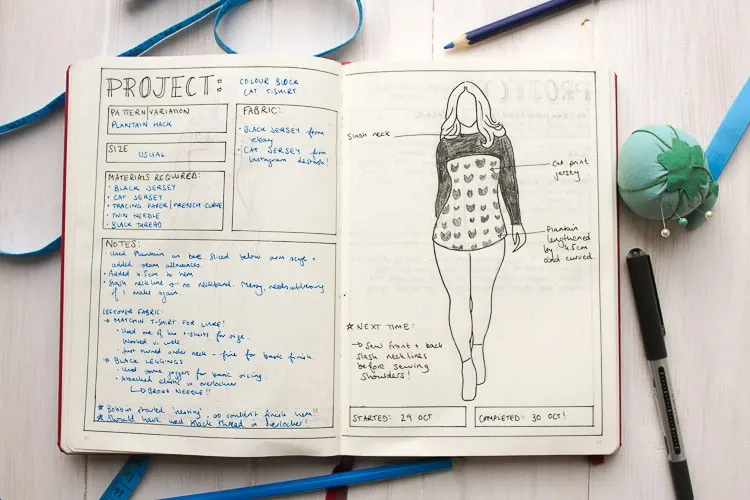 PROJECT:
COLOUR BLOCK
CAT T-SHIRT
PATTERN/VARIATION
PLANTAIN HACK
SIZE
USUAL
MATERIALS REQUIRED:
• BLACK JERSEY
• CAT JERSEY
• TRACING PAPER/FRENCH CURVE
• TWIN NEEDLE
• BLACK THREAD
FABRIC:
• BLACK JERSEY from
ebay
• CAT JERSEY from
Instagram destash!
NOTES:
• Used Plantain as base. Sliced below arm scye +
added seam allowances.
• Added 4.5cm to hem
• Slash neckline + no neckband. Messy, needs
if I make again
LEFTOVER FABRIC:
→ MATCHIN T-SHIRT FOR LUKE!
• Used one of his t-shirts for size.
Worked v. well.
• Just turned under neck - fine for basic finish.
→ BLACK LEGGINGS
• Used some joggers for basic sizing.
• Attached elastic w. overlocker
↳ BROKE NEEDLE!!
★ Bobbin started 'nesting', so couldn't finish hem!!
★ Should have used black thread in overlocker!
Slash neck
Cat print
jersey
Plantain
lengthened
by 4.5cm
and curved.
★ NEXT TIME:
→ Sew front + back
slash necklines
before sewing
shoulders!
STARTED: 29 OCT
COMPLETED: 30 OCT!